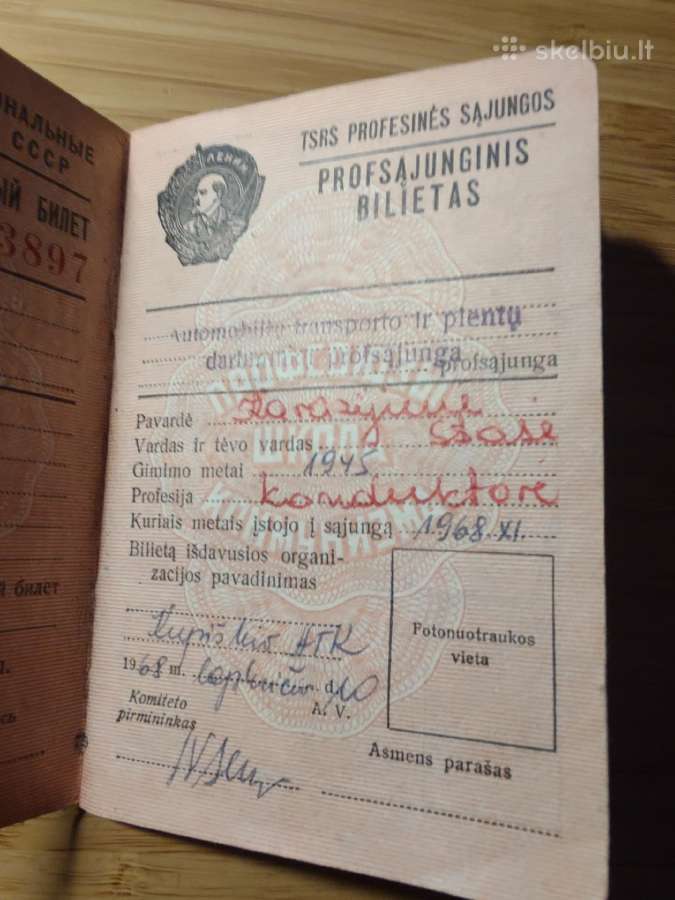 skelbiu.lt
ОНАЛЬНЫЕ
СССР
ЫЙ БИЛЕТ
3897
й билет
ЛЕНИН
TSRS PROFESINĖS SĄJUNGOS
PROFSĄJUNGINIS
BILIETAS
Automobilių transporto ir plentų
profsąjunga profsąjunga
Pavardė
Vardas ir tėvo vardas Stasė
Gimimo metai 1945
Profesija Konduktorė
Kuriais metais įstojo į sąjungą 1968 XI.
Bilietą išdavusios organi-
zacijos pavadinimas
Kupiškio ATK
1968 m. lapkričio d. 10
Komiteto
pirmininkas
A. V.
Fotonuotraukos
vieta
Asmens parašas
ШКОЛА
КОММУНИЗМА